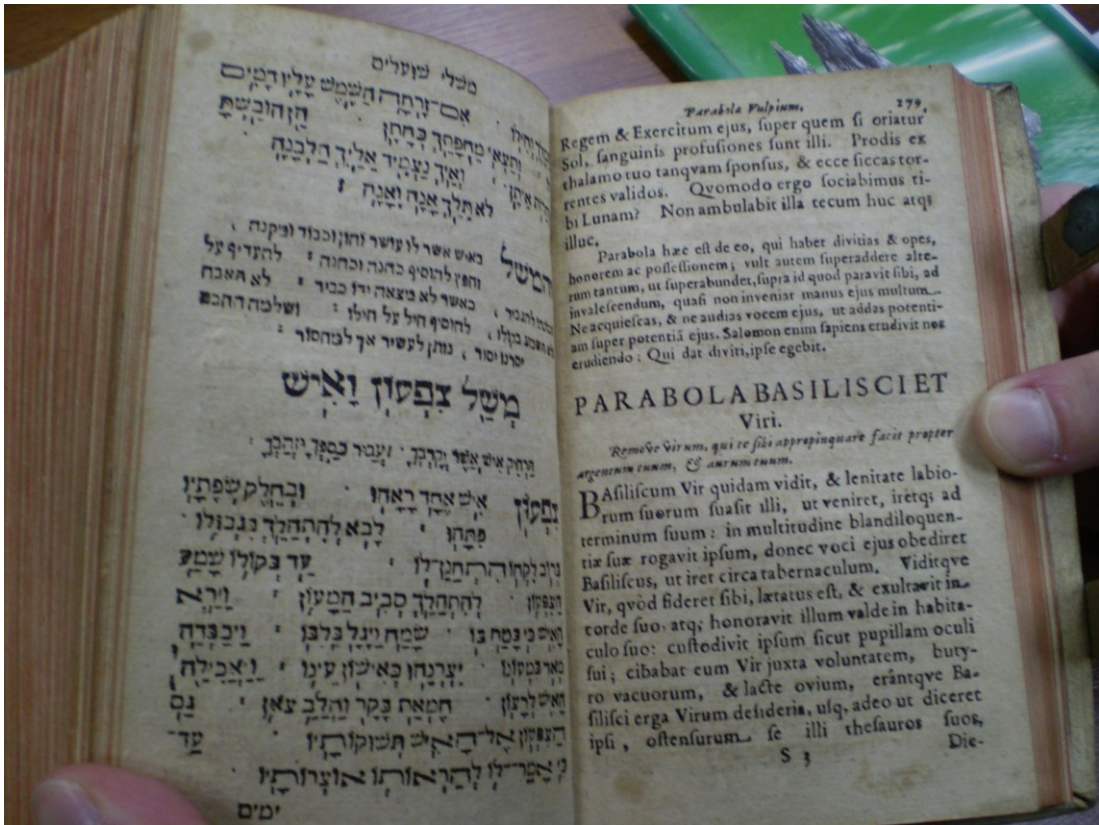 משלי שועלים
אִם־זָרְחָה הַשֶּׁמֶשׁ עָלָיו דָּמִים
וְתֵצְאִי מֵחֻפָּתֵךְ כְּחָתָן הֵן הוֹבַשְׁתָּ
וְאֵיךְ נַצְמִיד אֵלֶיךָ הַלְּבָנָה
לֹא תֵלֵךְ אָנֶה וָאָנָה
המשל באיש אשר לו עושר והון וכבוד ומקנה
וחפץ להוסיף כהנה וכהנה להעדיף על
כאשר לא מצאה ידו כביר לא תאבה
להוסיף חיל על חילו ושלמה החכם
יסרנו יסור נותן לעשיר אך למחסור
מְשַׁל צִפְעוֹן וָאִישׁ
הַרְחֵק אִישׁ אֲשֶׁר יְקָרֶבְךָ
צִפְעוֹן אִישׁ אֶחָד רָאָהוּ וּבְחֵלֶק שְׂפָתָיו
פִּתָּהוּ לָבֹא לְהִתְהַלֵּךְ בִּגְבוּלוֹ
הִתְחַנֶּן־לוֹ עַד בְּקוֹלוֹ שָׁמַע
הַצִּפְעוֹן לְהִתְהַלֵּךְ סְבִיב הַמָּעוֹן וַיַּרְא
הָאִישׁ כִּי בָטַח בּוֹ שָׂמַח וַיָּגֶל בְּלִבּוֹ וַיְכַבְּדֵהּ
מְאֹד בִּמְעוֹנוֹ יִצְּרֶנְהוּ כְּאִישׁוֹן עֵינוֹ וַיַּאֲכִילֵהּ
הָאִישׁ לִרְצוֹן חֶמְאַת בָּקָר וַחֲלֵב צֹאן גַּם
הַצִּפְעוֹן אֶל־הָאִישׁ תְּשׁוּקוֹתָיו עַד־
כִּי אָמַר־לוֹ לְהַרְאוֹתוֹ אוֹצְרוֹתָיו
ימים
Parabola Vulpium. 279.
Regem & Exercitum ejus, super quem si oriatur
Sol, sanguinis profusiones sunt illi. Prodis ex
thalamo tuo tanqvam sponsus, & ecce siccas tor-
rentes validos. Qvomodo ergo sociabimus ti-
bi Lunam? Non ambulabit illa tecum huc atqs
illuc.
Parabola hæc est de eo, qui habet divitias & opes,
honorem ac possessionem; vult autem superaddere alte-
rum tantum, ut superabundet, supra id quod paravit sibi, ad
invalescendum, quasi non inveniat manus ejus multum.
Ne acquiescas, & ne audias vocem ejus, ut addas potenti-
am super potentiã ejus. Salomon enim sapiens erudivit nos
erudiendo: Qui dat diviti, ipse egebit.
PARABOLA BASILISCI ET
Viri.
Remove virum, qui te sibi appropinquare facit propter
argentum tuum, & aurum tuum.
BAsiliscum Vir quidam vidit, & lenitate labio-
rum suorum suasit illi, ut veniret, iretq; ad
terminum suum: in multitudine blandiloquen-
tiæ suæ rogavit ipsum, donec voci ejus obediret
Basiliscus, ut iret circa tabernaculum. Viditqve
Vir, qvòd fideret sibi, lætatus est, & exultavit in
corde suo. atq; honoravit illum valde in habita-
culo suo: custodivit ipsum sicut pupillam oculi
sui; cibabat eum Vir juxta voluntatem, buty-
ro vacuorum, & lacte ovium, erántqve Ba-
silisci erga Virum desideria, usq, adeo ut diceret
ipsi, ostensurum se illi thesauros suos,
S 3 Die-